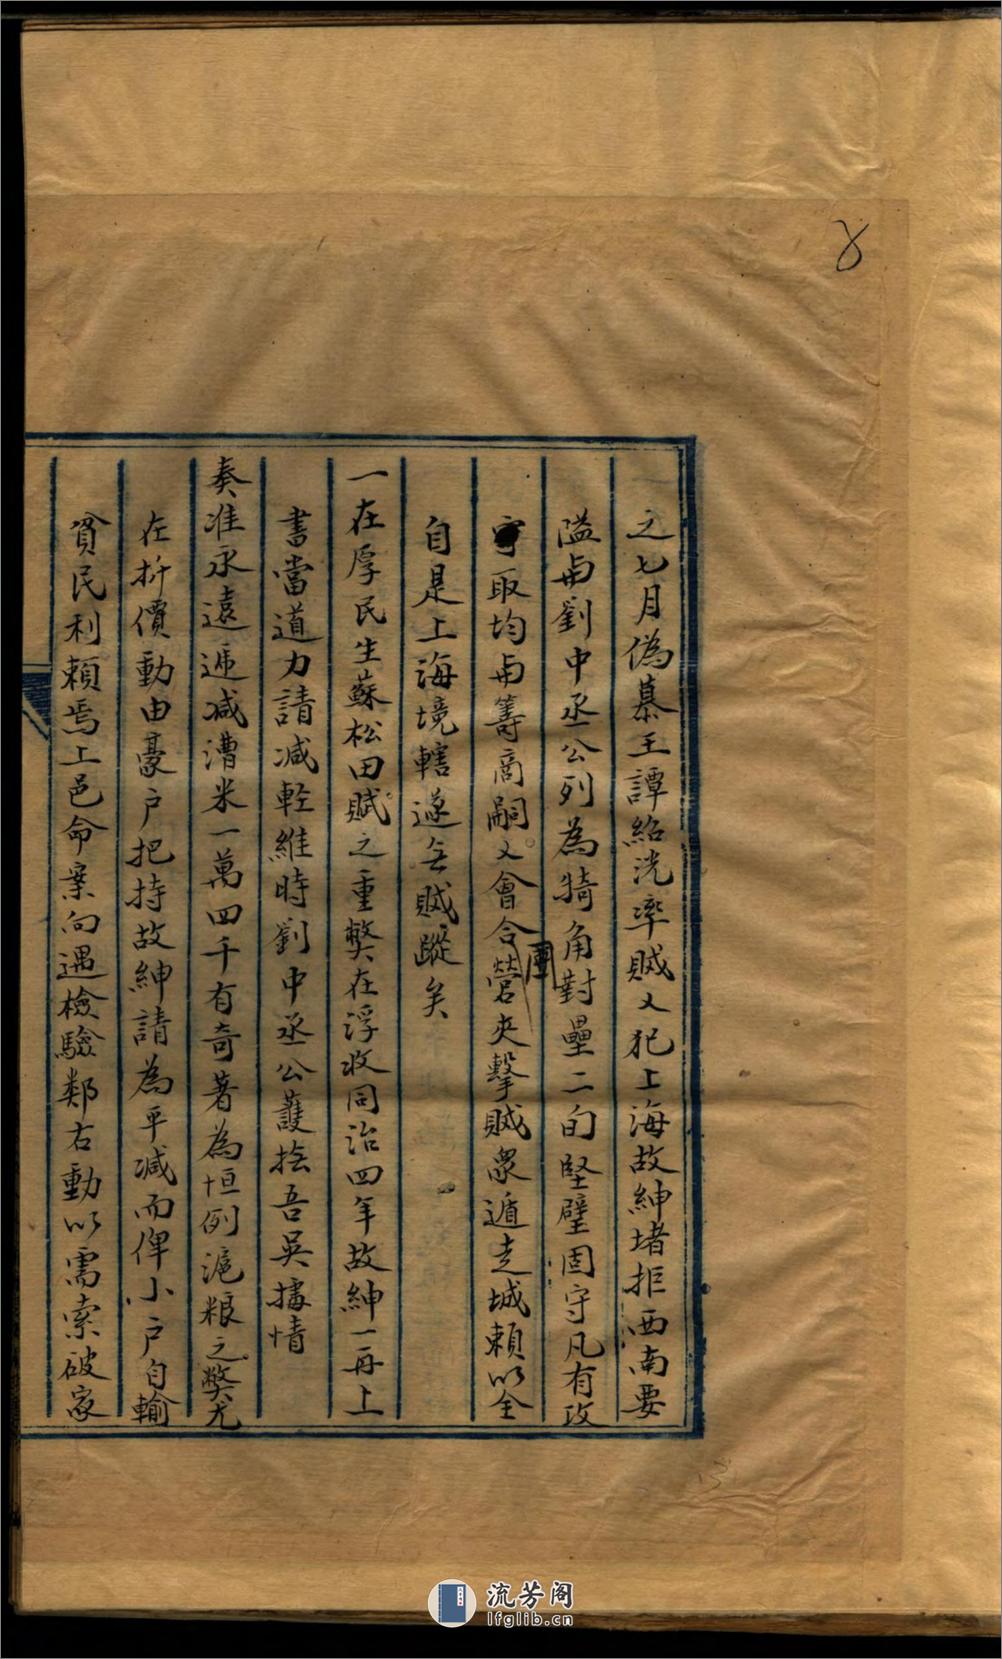 8
之七月偽慕王譚紹洸率賊又犯上海故紳堵拒西南要
隘與劉中丞公列為犄角對壘二旬堅壁固守凡有攻
守取均與籌商嗣又會合營團夾擊賊衆遁走城賴以全
自是上海境轄遂無賊蹤矣
一在厚民生蘇松田賦之重弊在浮收同治四年故紳一再上
書當道力請減輕維時劉中丞公護撫吾吳據情
奏准永遠遞減漕米一萬四千有奇著為恒例滬粮之弊尤
在折價動由豪户把持故紳請為平減而俾小户自輸
貧民利賴焉上邑命案向遇檢驗鄰右動以需索破家
流芳阁
lfglib.cn